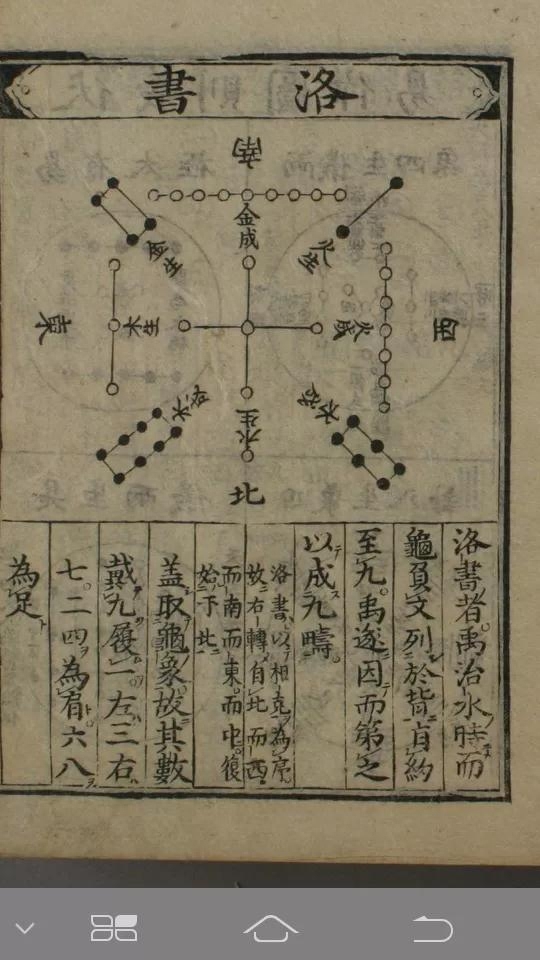 洛書
南
金成
金生
火生
東
木生
火成
西
木成
水成
水生
北
洛書者禹治水時而
龜負文列於背有
至九禹遂因而第之
以成九疇
洛書以相克為序
故右轉自北而西
而南而東而中復
始下北
蓋取龜象故其數
戴九履一左三右
七二四為肩六八
為足